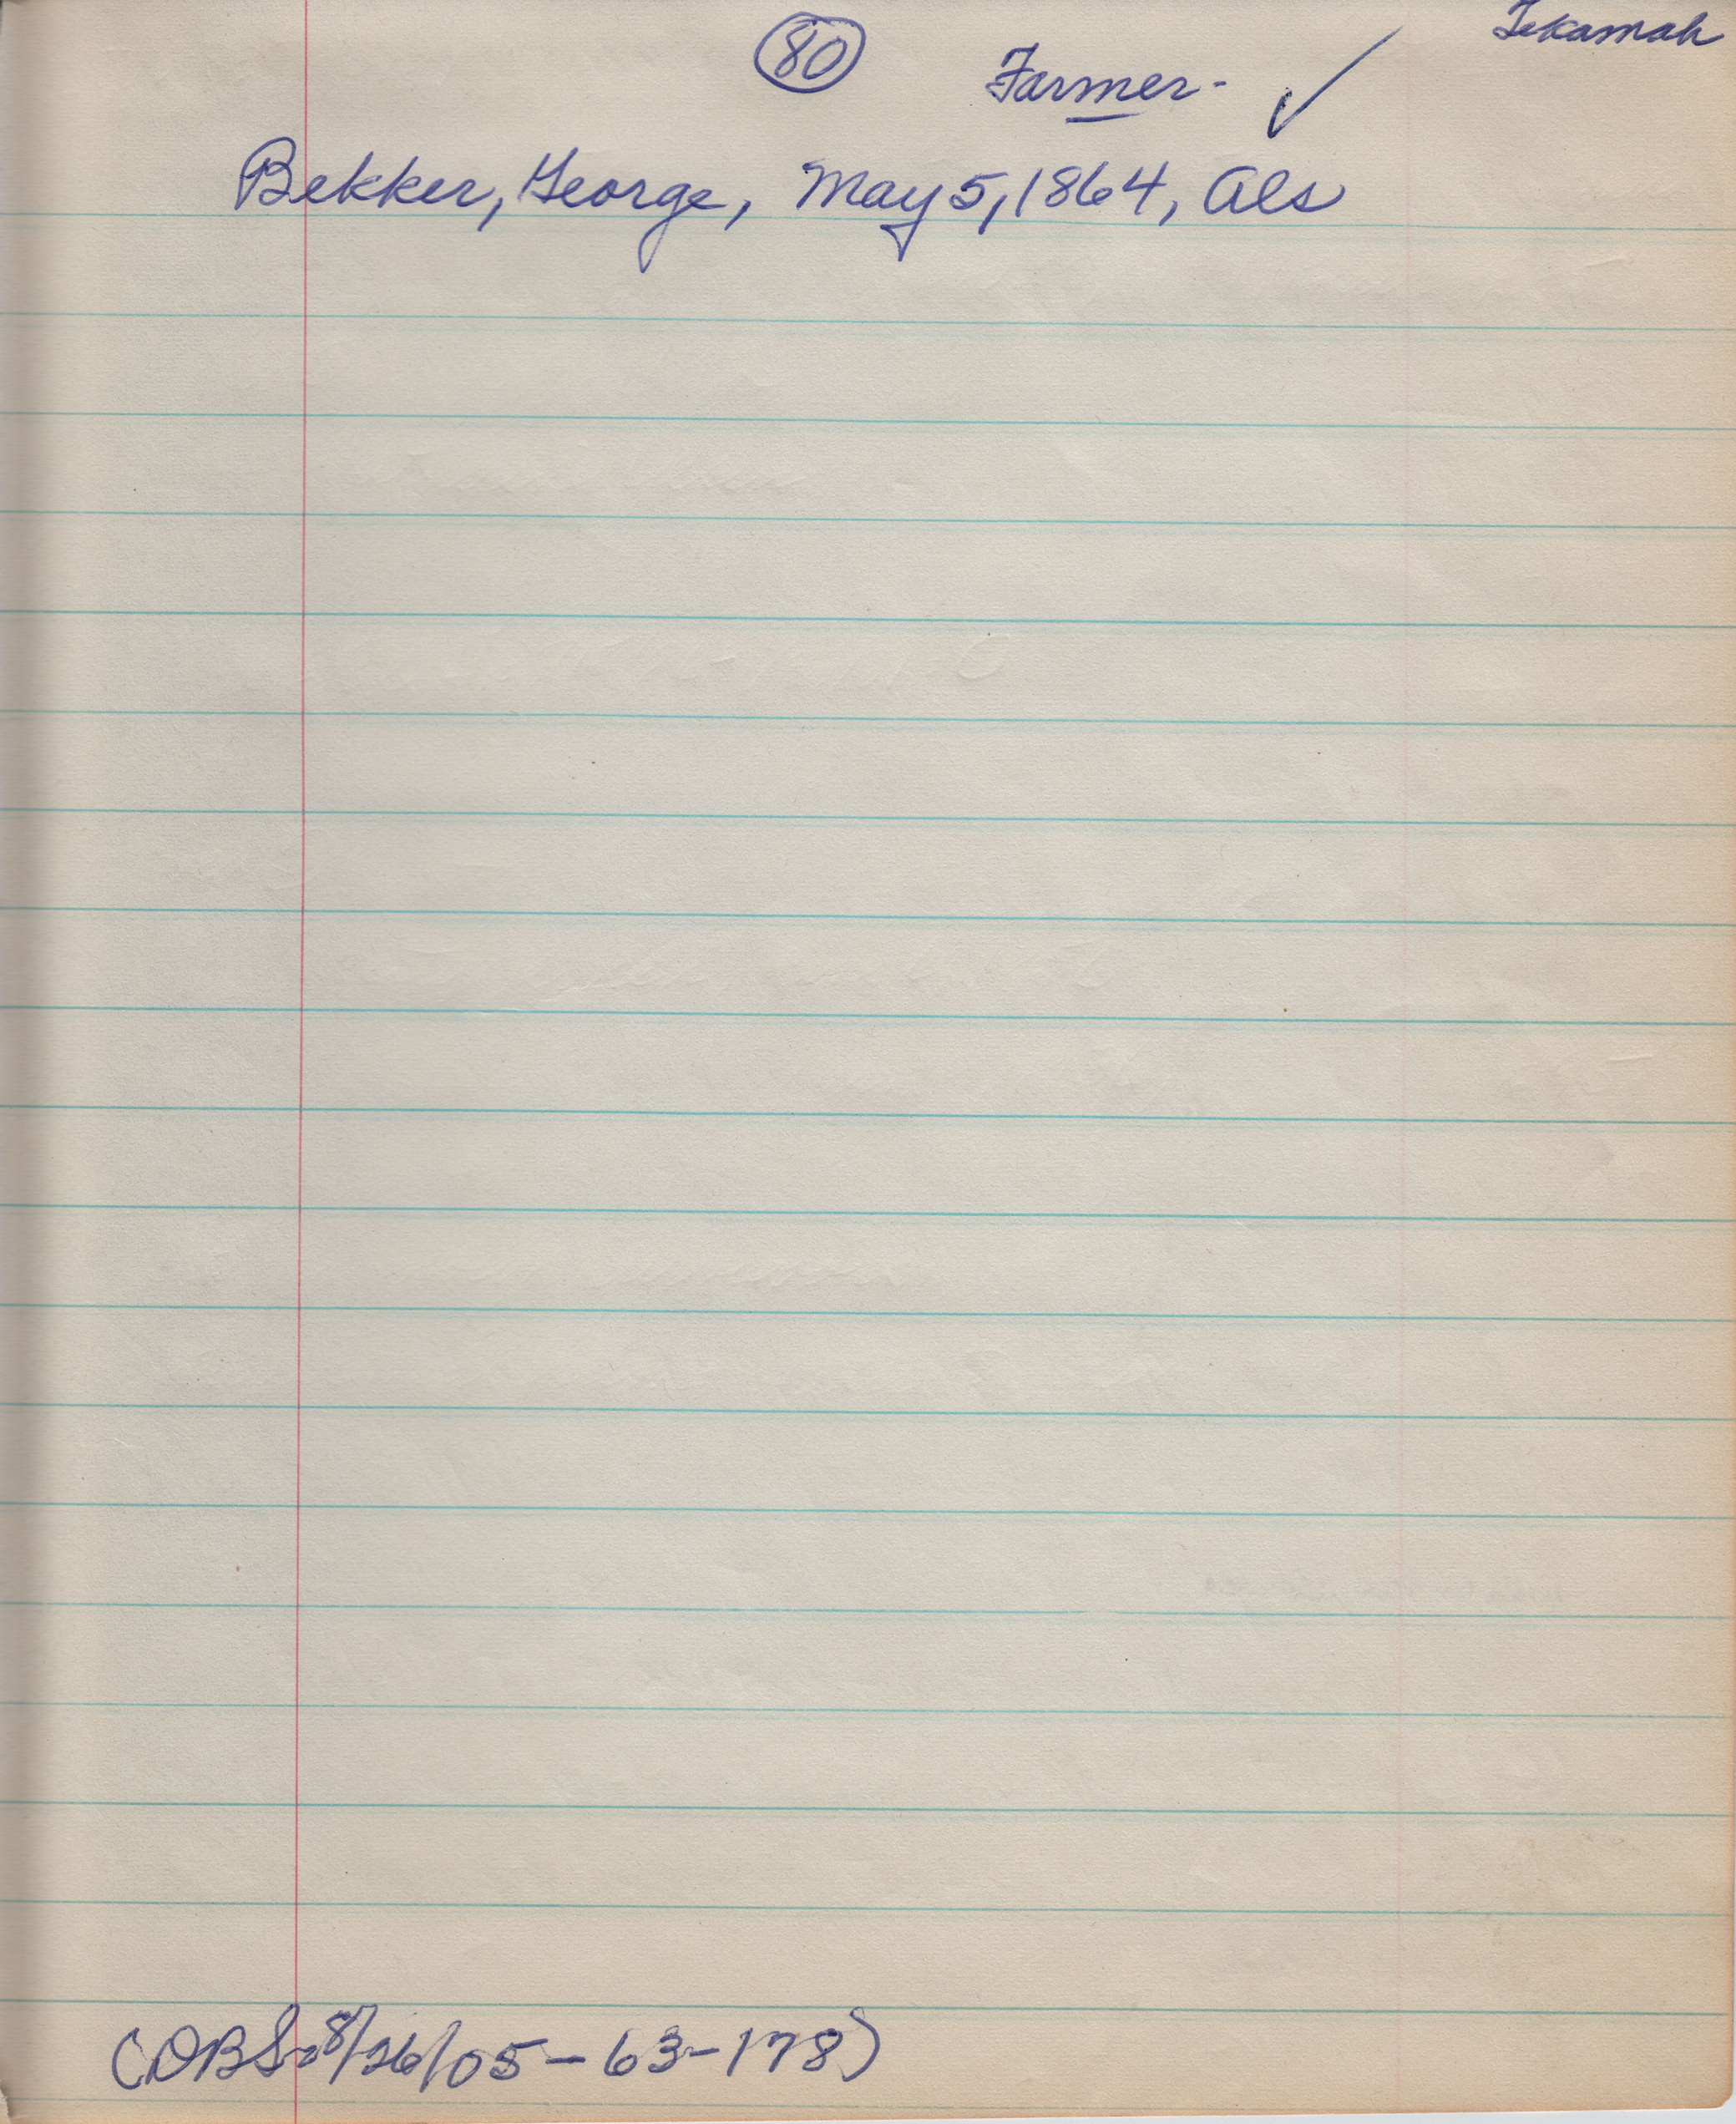 Tekamah
80
Farmer - ✓
Bekker, George, May 5, 1864, Als
(DBS-8/26/05-63-178)